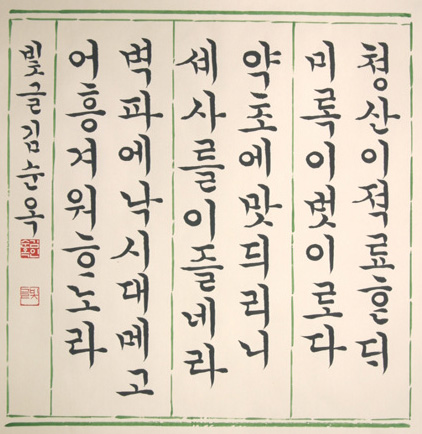 쳥산이적료ᄒᆞᆫ듸
미록이벗이로다
약초에맛듸리니
셰사를이즐네라
벽파에낙시대메고
어흥겨워ᄒᆞ노라
빛글김순옥